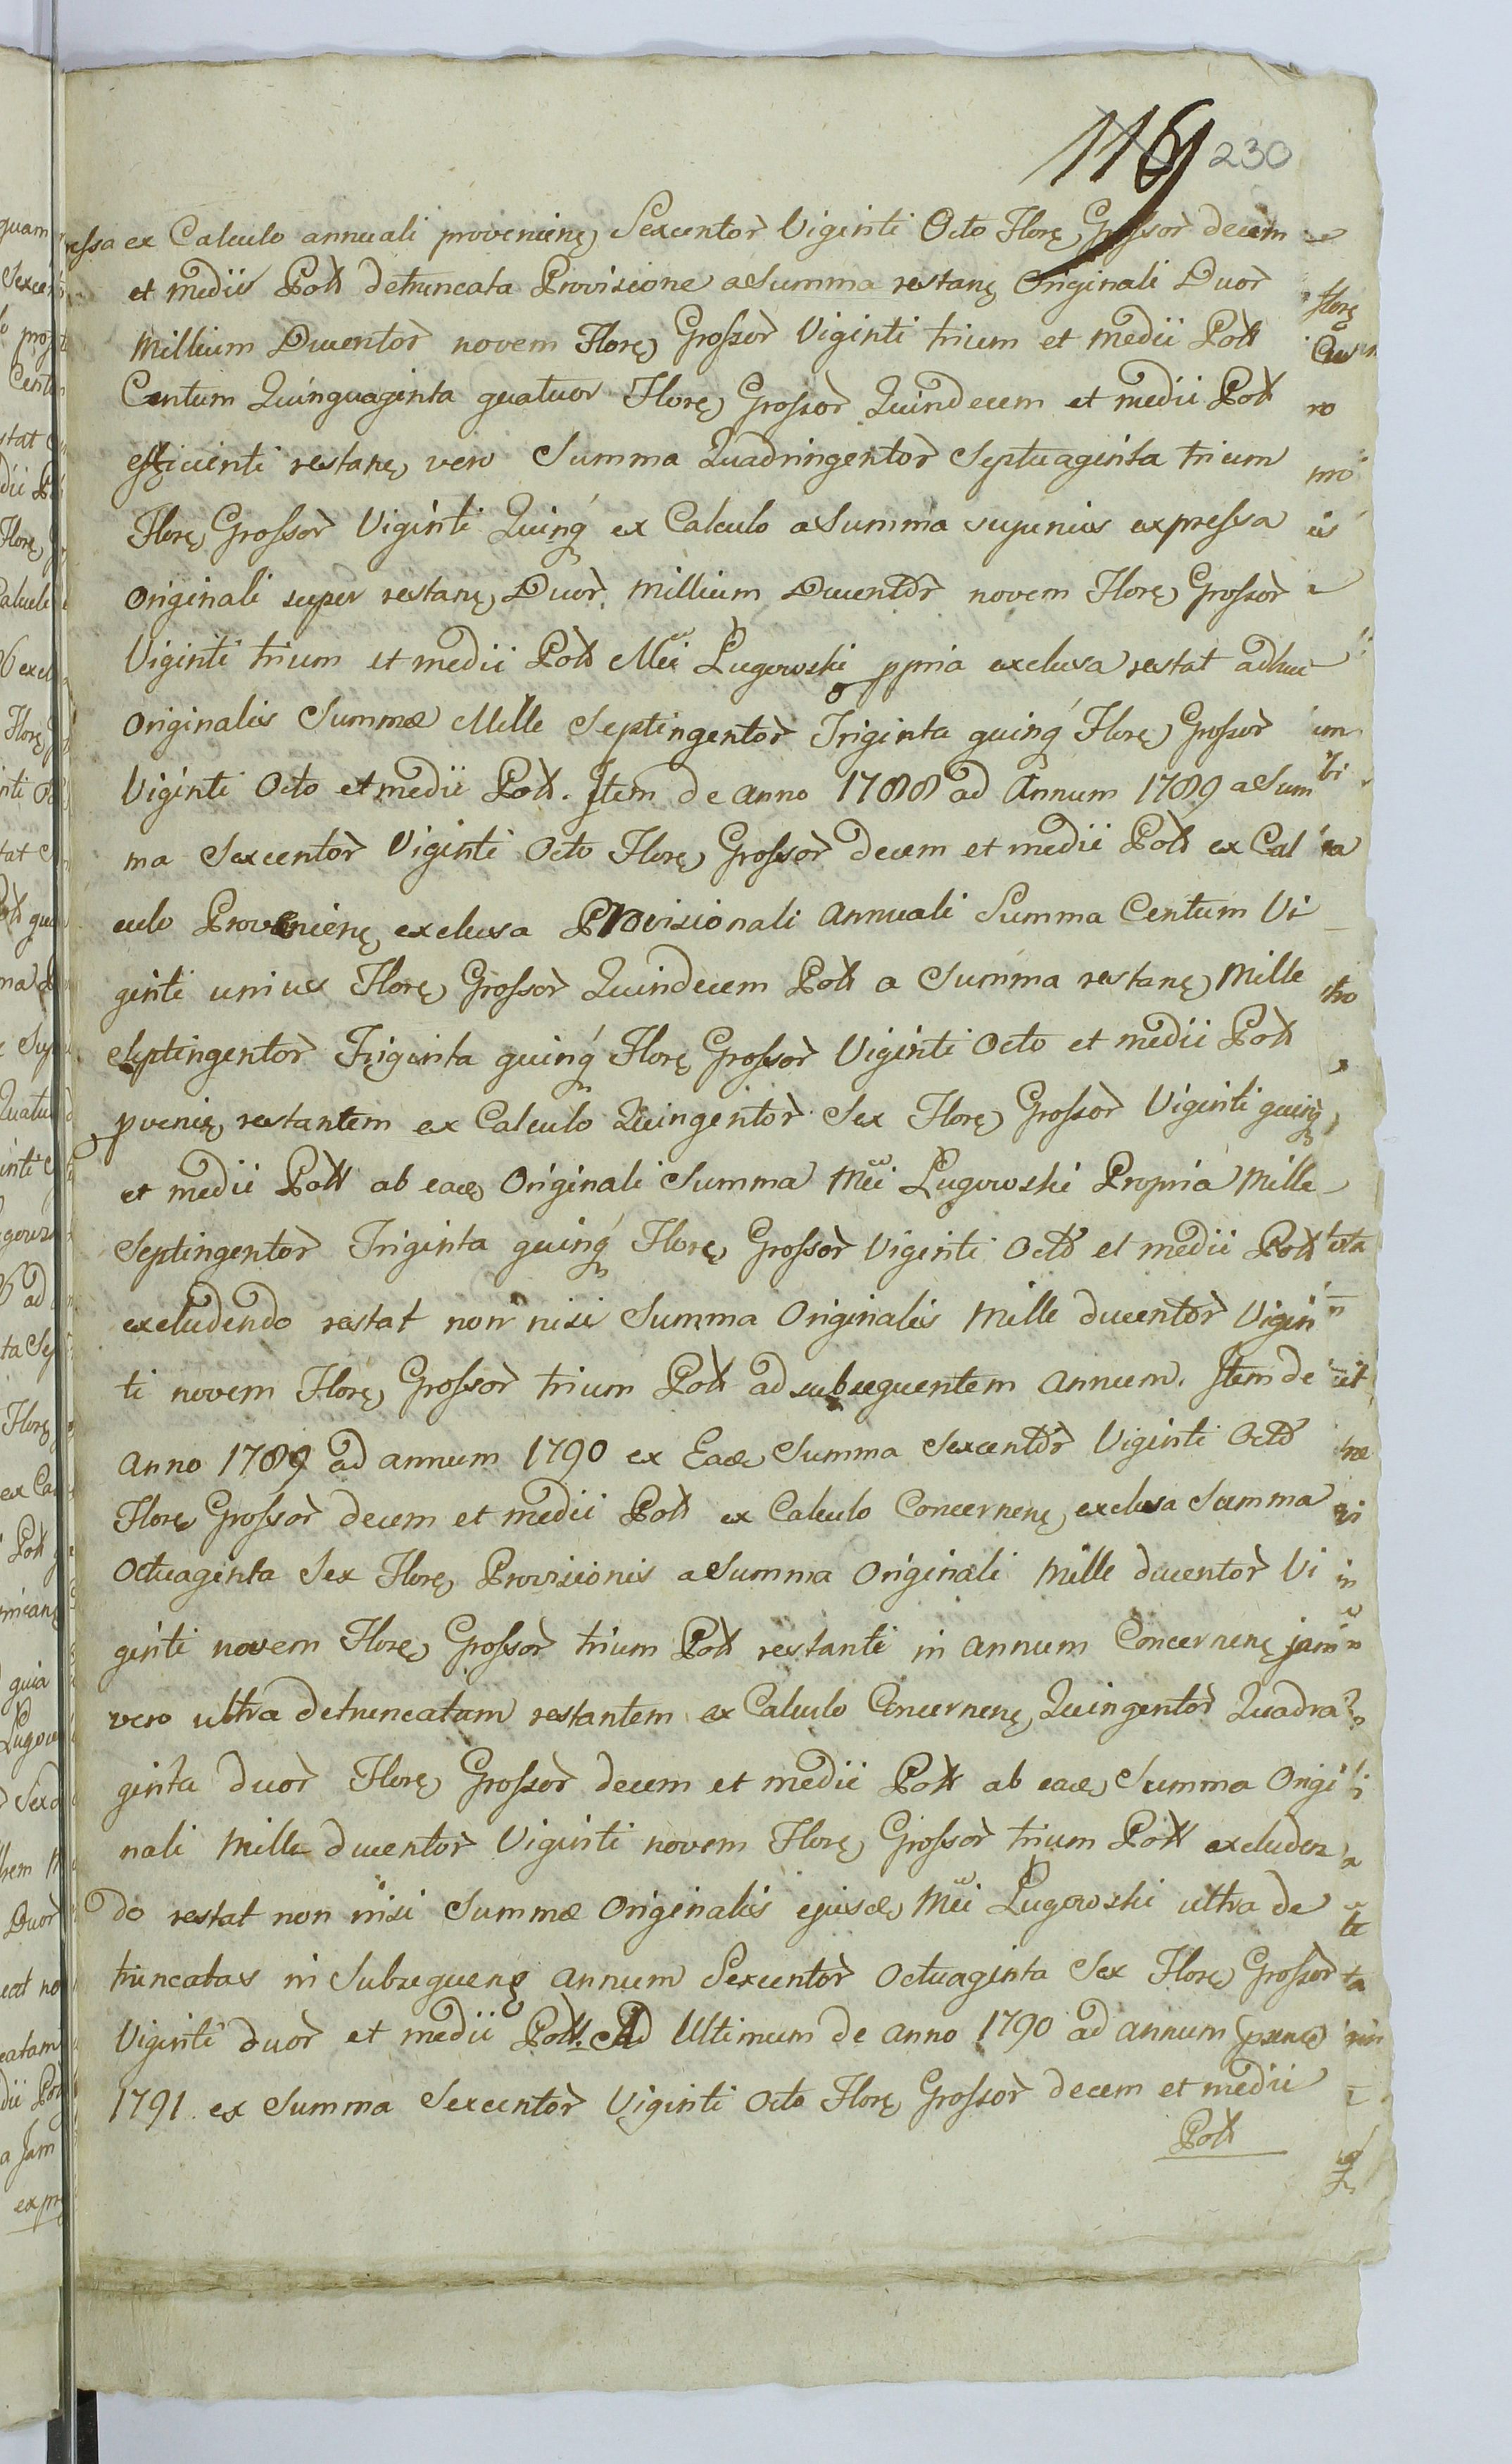 119 230
ressa ex Calculo annuali provenienę Sexcentor̀ Viginti Octo Florę Grossor̀ decem
et medii Poll detruncata Provisione a Summa restanę Originali Duor̀
Millium Ducentor̀ novem Florę Grossor̀ Viginti trium et medii Poll
Centum Quinquaginta quatuor Florę Grossor̀ Quindecem et medii Poll
efficienti restanę vero Summa Quadringentor̀ Septuaginta trium
Florę Grossor̀ Viginti Quinq́ ex Calculo a Summa superius expressa
Originali super restanę Duor̀ Millium Ducentor̀ novem Florę Grossor̀
Viginti trium et medii Poll Mei Ługowski ppria exclusa restat adhuc
Originalis Summæ Mille Septingentor̀ Triginta quinq́ Florę Grossor̀
Viginti Octo et medii Poll. Item de anno 1788 ad Annum 1789 a Sum
ma Sexcentor̀ Viginti Octo Florę Grossor̀ decem et medii Poll ex Cal
culo Provenienę exclusa Provisionali Annuali Summa Centum Vi
ginti unius Florę Grossor̀ Quindecem Poll a Summa restanę Mille
Septingentor̀ Triginta quinq́ Florę Grossor̀ Viginti Octo et medii Poll
pvenię restantem ex Calculo Quingentor̀ Sex Florę Grossor̀ Viginti quinq́
et medii Poll ab eadę Originali Summa Mei Ługowski Propria Mille
Septingentor̀ Triginta quinq́ Florę Grossor̀ Viginti Octo et medii Poll
excludendo restat non nisi Summa Originalis Mille ducentor̀ Vigin
ti novem Florę Grossor̀ trium Poll ad subsequentem Annum. Item de
Anno 1789 ad annum 1790 ex Eadę Summa Sexcentor̀ Viginti Octo
Florę Grossor̀ decem et medii Poll ex Calculo Concernenę exclusa Summa
Octuaginta Sex Florę Provisionis a Summa Originali Mille ducentor̀ Vi
ginti novem Florę Grossor̀ trium Poll restanti in Annum Concernenę jam
vero ultra detruncatam restantem ex Calculo Concernenę Quingentor̀ Quadra
ginta duor̀ Florę Grossor̀ decem et medii Poll ab eadę Summa Origi
nali Mille ducentor̀ Viginti novem Florę Grossor̀ trium Poll excluden
do restat non nisi Summæ Originalis ejusdę Mei Ługowski ultra de
truncatas in Subsequenę Annum Sexcentor̀ Octuaginta Sex Florę Grossor̀
Viginti duor̀ et medii Poll. Ad Ultimum de Anno 1790 ad annum pxenę
1791 ex Summa Sexcentor̀ Viginti Octo Florę Grossor̀ decem et medii
Poll